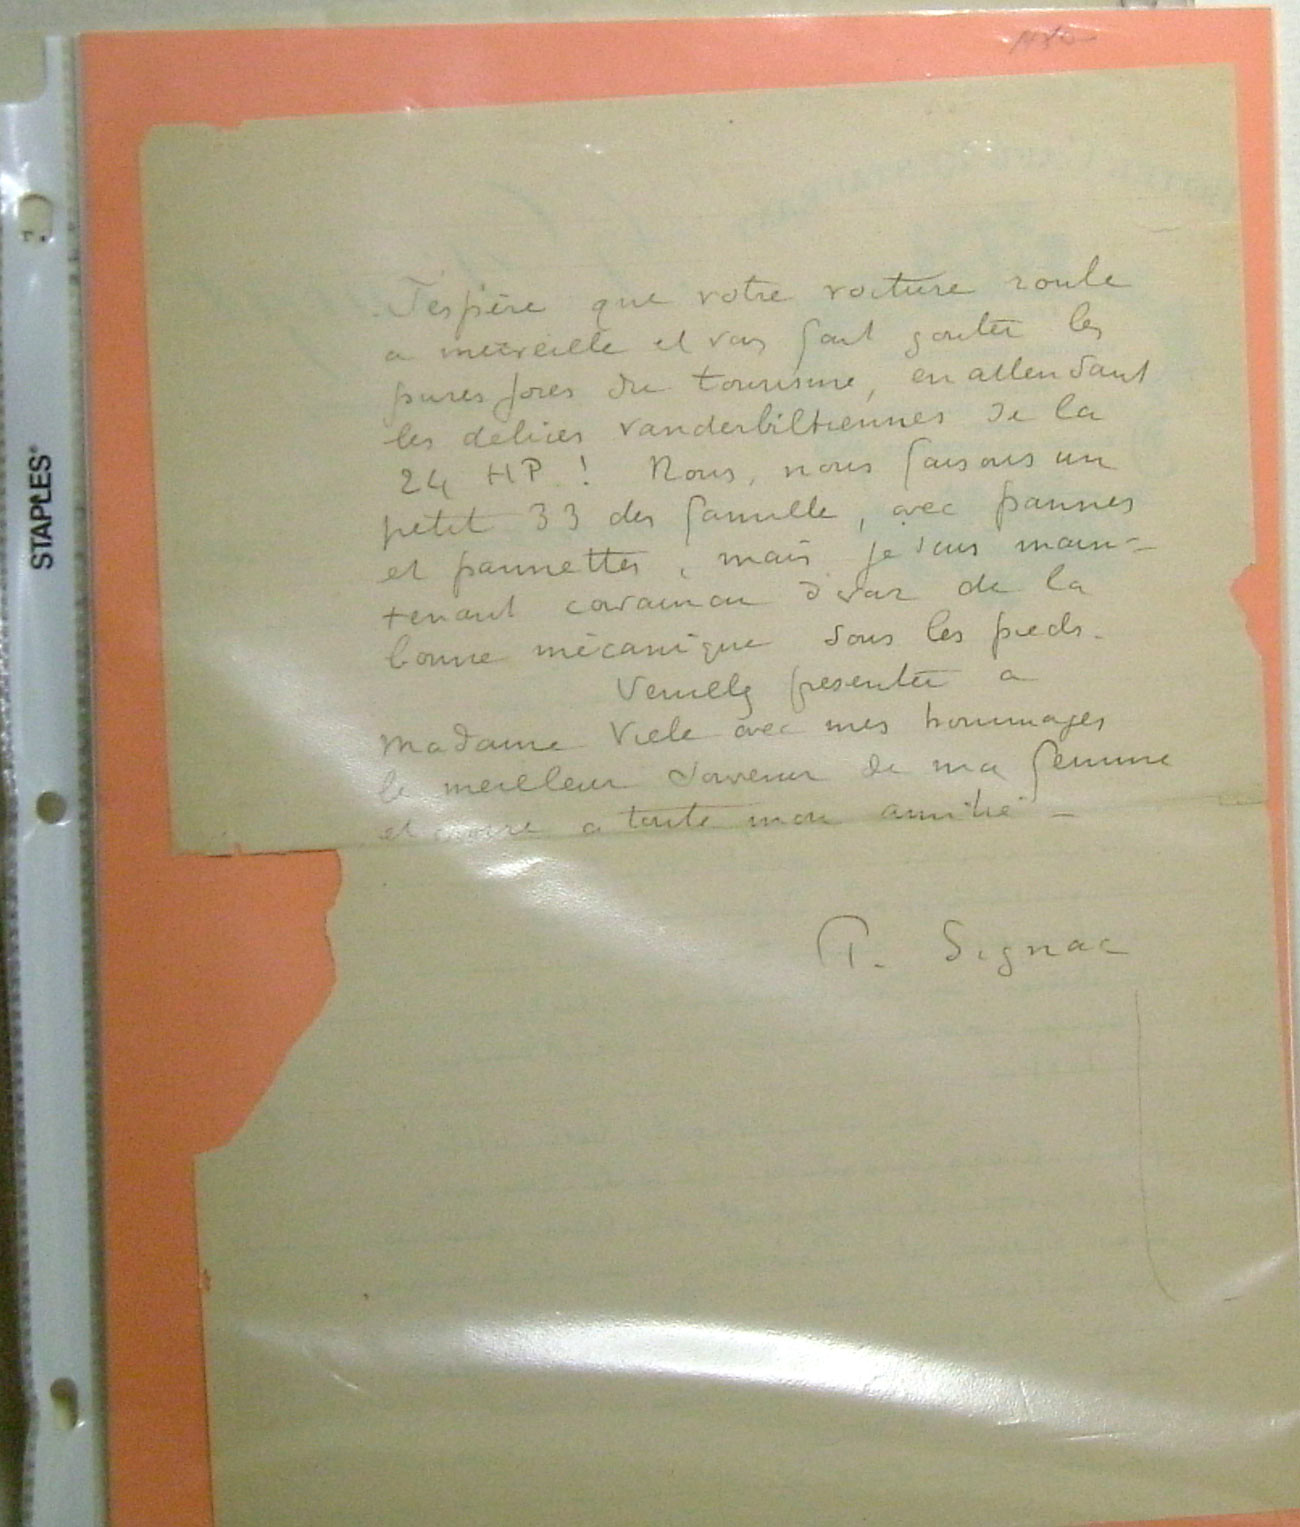 J'espère que votre voiture roule
a merveille et vous fait gouter les
pures joies du tourisme, en attendant
les delices vanderbiltiennes de la
24 HP.! Nous, nous faisons un
petit 33 des famille, avec pannes
et pannettes, mais je suis main-
tenant convaincu d'avoir de la
bonne mécanique sous les pieds.
Veuillez presenter a
Madame Viele avec mes hommages
le meilleur souvenir de ma femme
et croire a toute mon amitié -
P. Signac
STAPLES